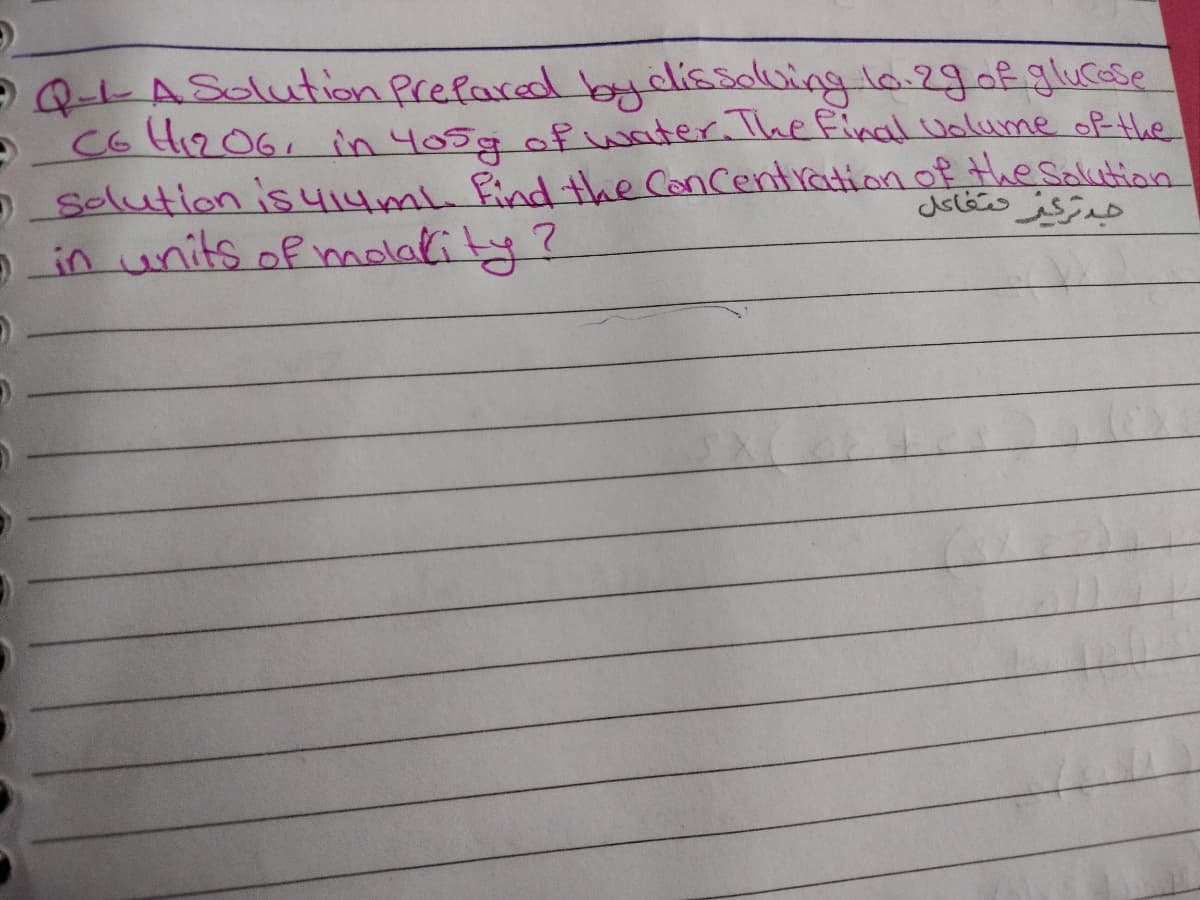 Q-1- A Solution Prepared by dissolving 10.2g of glucose
C6 H12O6, in 405g of water. The final volume of the
solution is 414mL. find the Concentration of the Solution
جد تركيز
in units of molarity?